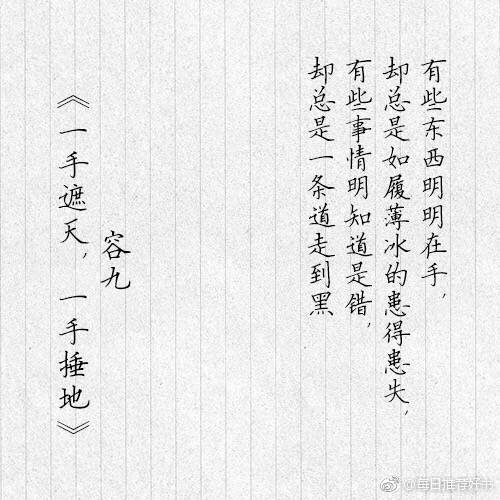 有些东西明明在手，
却总是如履薄冰的患得患失，
有些事情明知道是错，
却总是一条道走到黑
容九
《一手遮天，一手捶地》
@每日推荐好书